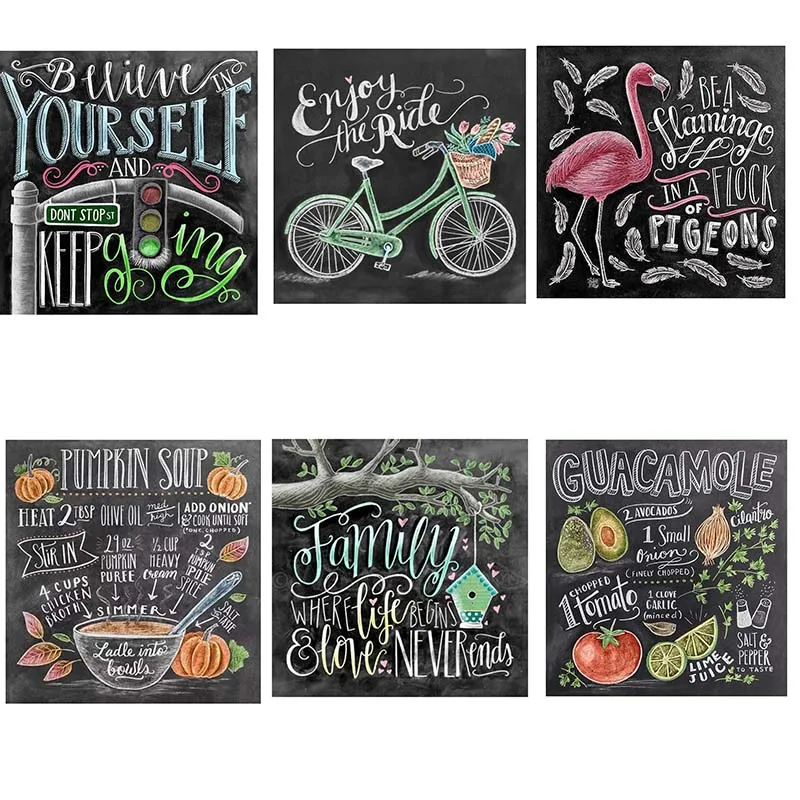 Believe IN
YOURSELF
AND
DONT STOP ST
KEEP going
Enjoy
the Ride
BE A
flamingo
IN A FLOCK
OF
PIGEONS
PUMPKIN SOUP
HEAT 2 TBSP OLIVE OIL med high
ADD ONION*
& COOK UNTIL SOFT
(*ONE, CHOPPED)
STIR IN
4 CUPS
CHICKEN
BROTH
29 oz.
PUMPKIN
PUREE
1/2 CUP
HEAVY
Cream
2
TSP
PUMPKIN
PIE
SPICE
SALT
to TASTE
SIMMER
Ladle into
bowls
Family
WHERE life BEGINS
& love NEVER ends
GUACAMOLE
2 AVOCADOS
1 Small
Onion
(FINELY CHOPPED)
cilantro
CHOPPED
1 tomato
1 CLOVE
GARLIC
(minced)
LIME
JUICE
SALT &
PEPPER
TO TASTE